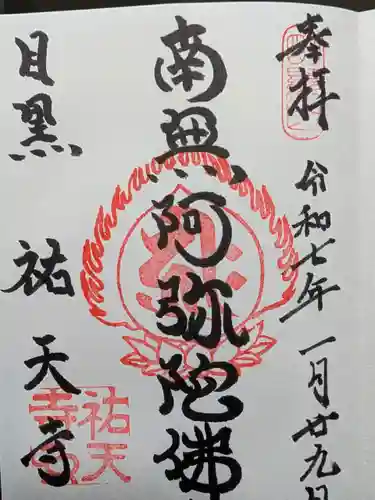 奉拝
令和七年一月廿九日
南無阿弥陀佛
目黒
祐天寺
祐天
寺